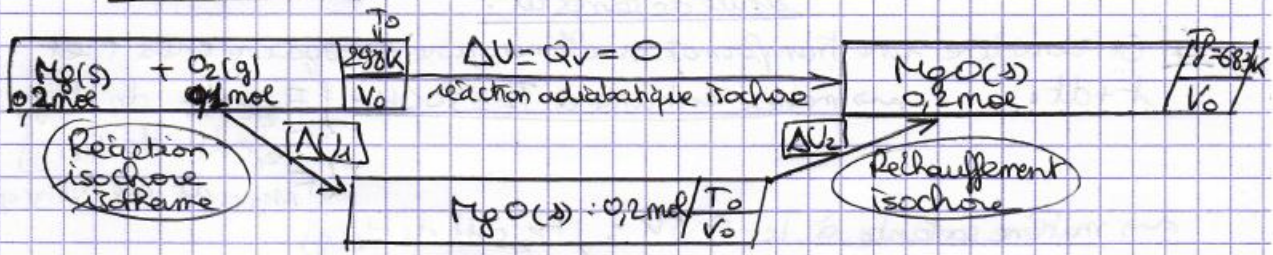 T0
Mg(s) + O2(g) 298K ΔU = Qv = 0 MgO(s) Tf=689K
0,2mol 0,1mol V0 réaction adiabatique isochore 0,2mol V0
Réaction isochore isotherme
ΔU1
ΔU2
Réchauffement isochore
MgO(s) : 0,2mol T0
V0